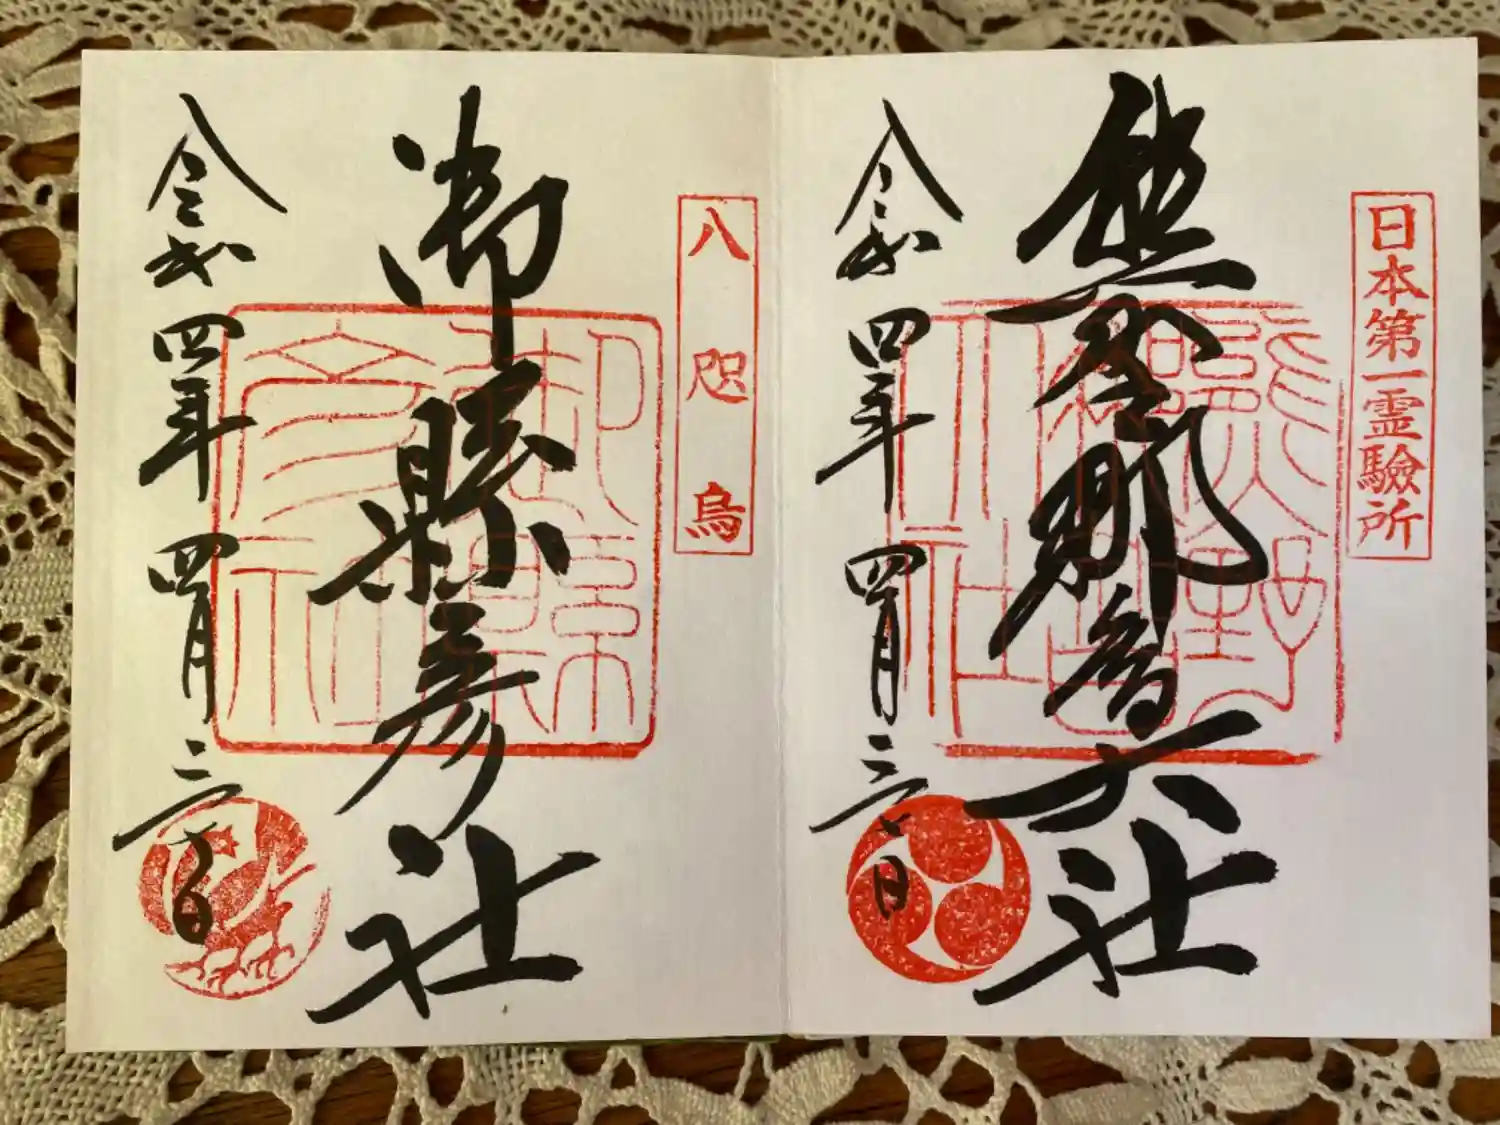 日本第一霊験所
熊野那智大社
令和四年四月三十日
熊野
那智
大社
八咫烏
御縣彦社
令和四年四月三十日
御縣
彦社